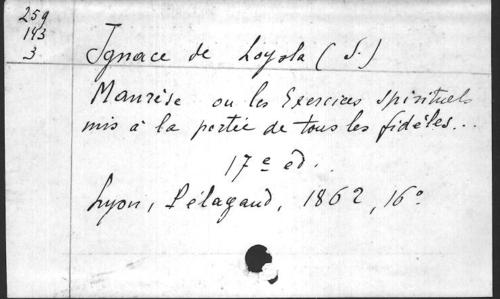 259
143
3
Ignace de Loyola (S.)
Manrèse ou les Exercices spirituels
mis à la portée de tous les fidèles...
17e éd.
Lyon, Pélagaud, 1862, 16°